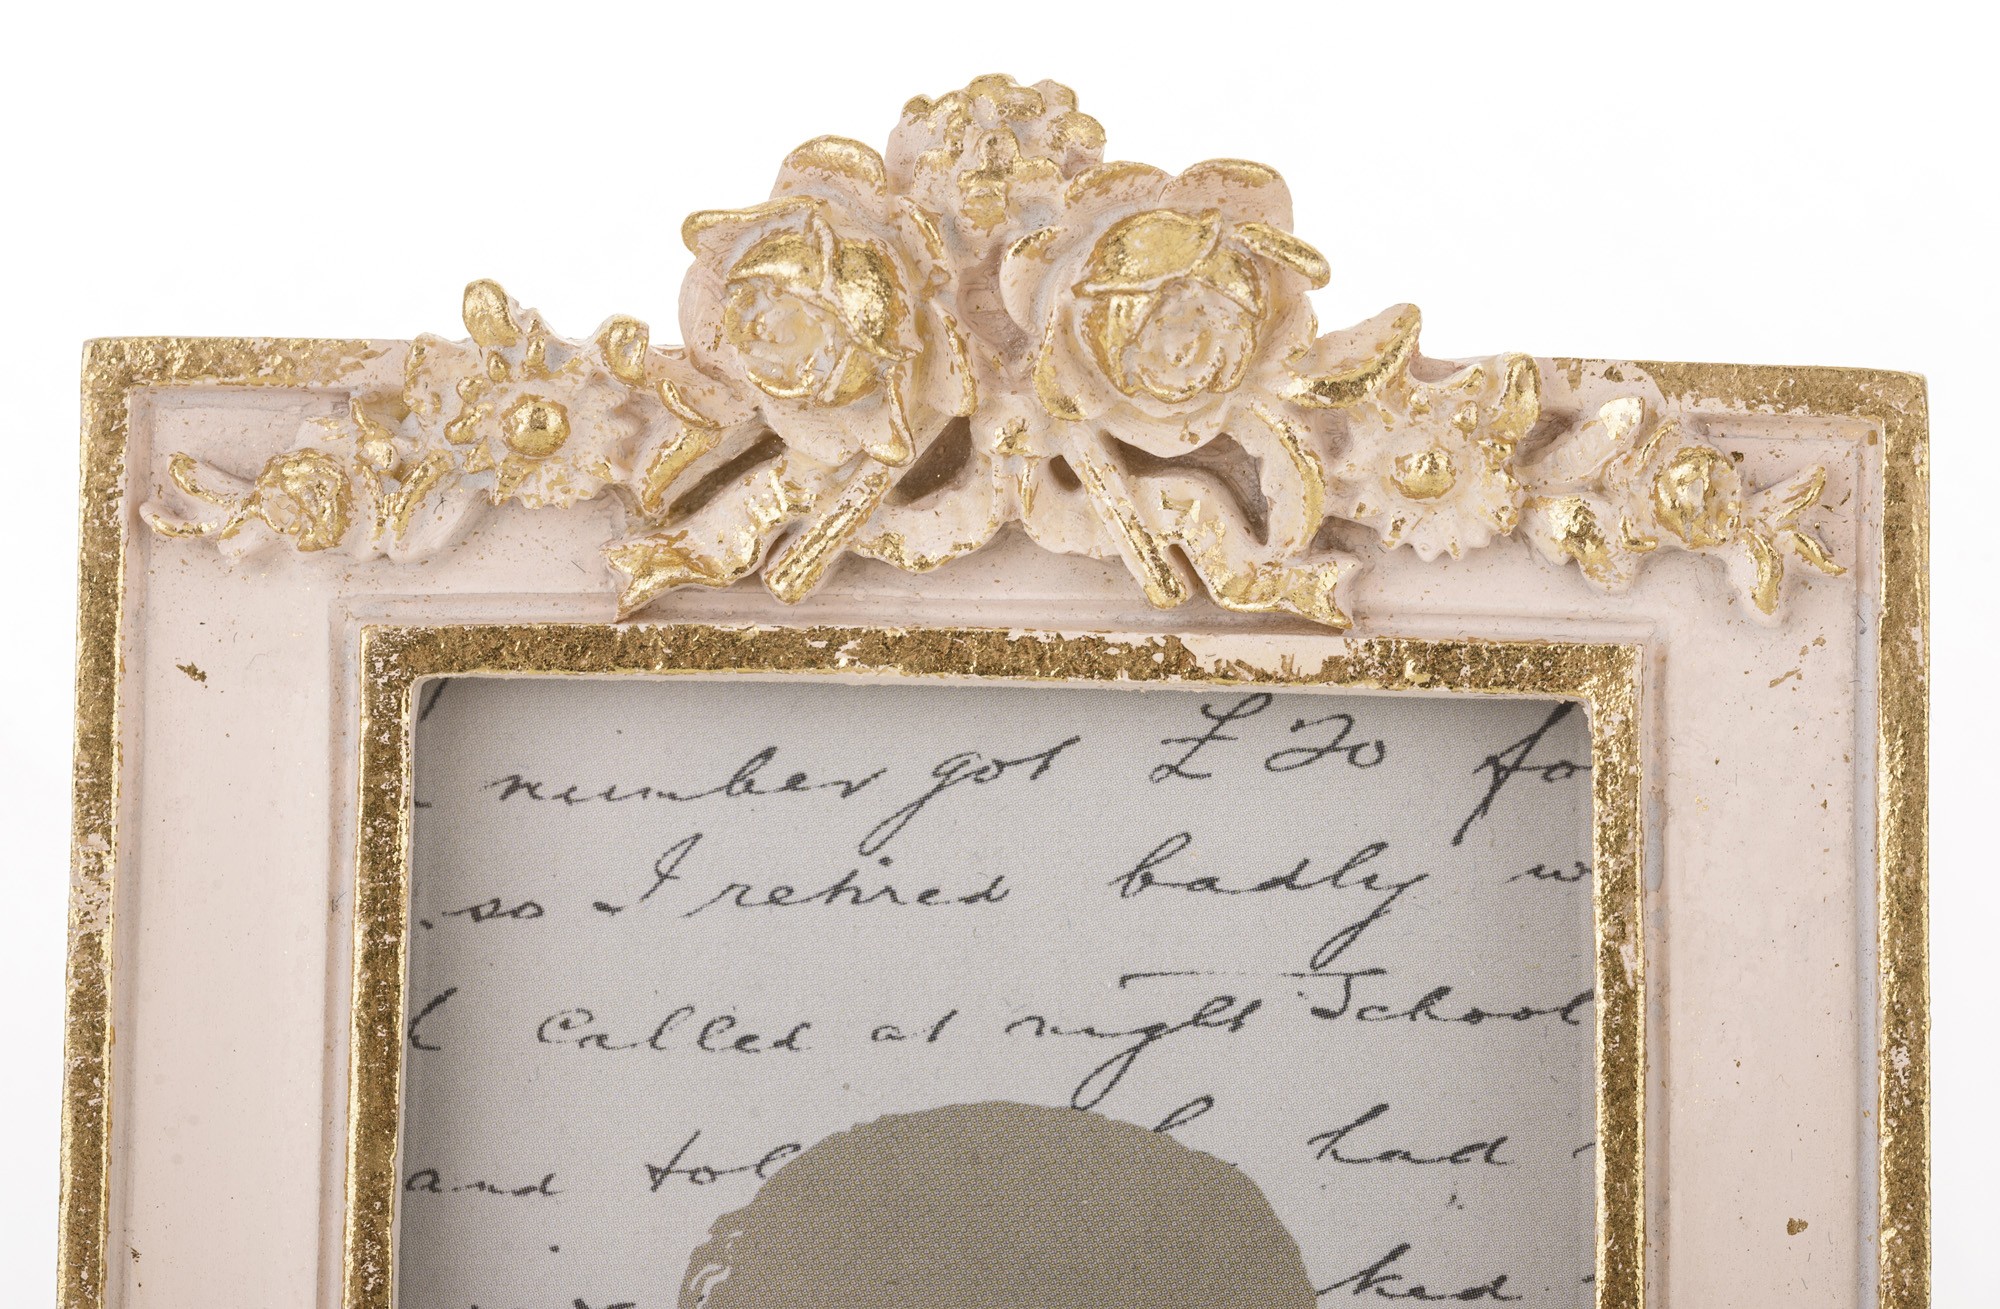 number got £ 20 fo
. so I retired badly w
Called at night School
and tol h had
ked